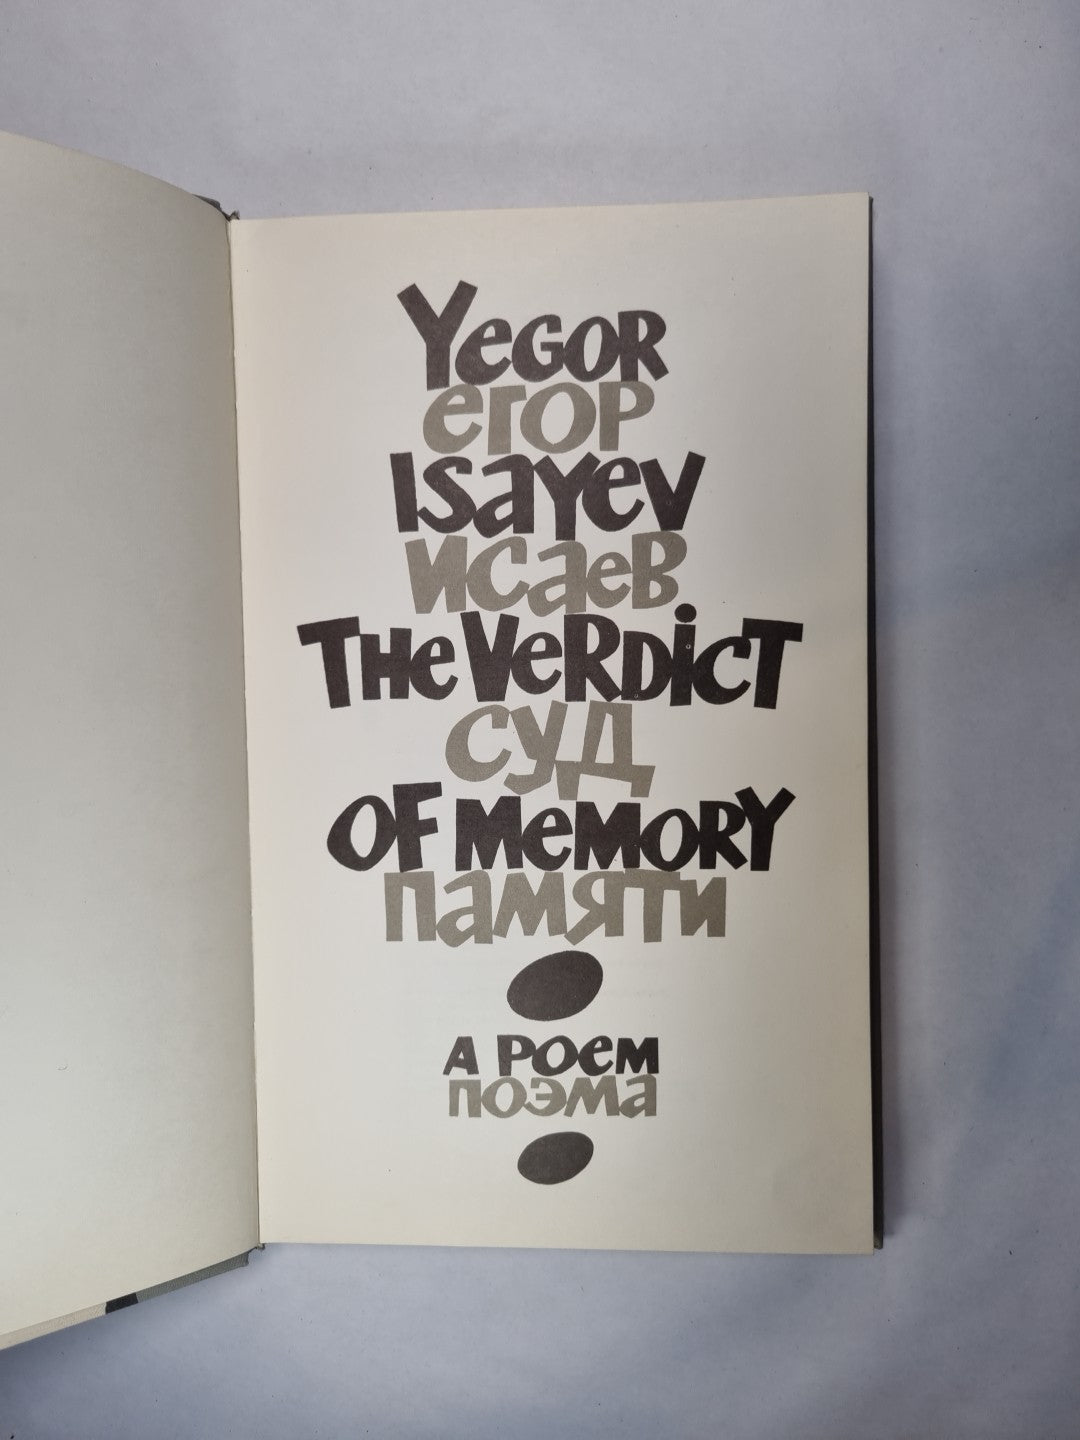 YeGOR
еГОР
ISayev
ИСаев
THe VeRDiCT
СУД
OF MeMORY
ПаМЯТИ
A POeM
ПОЭМа